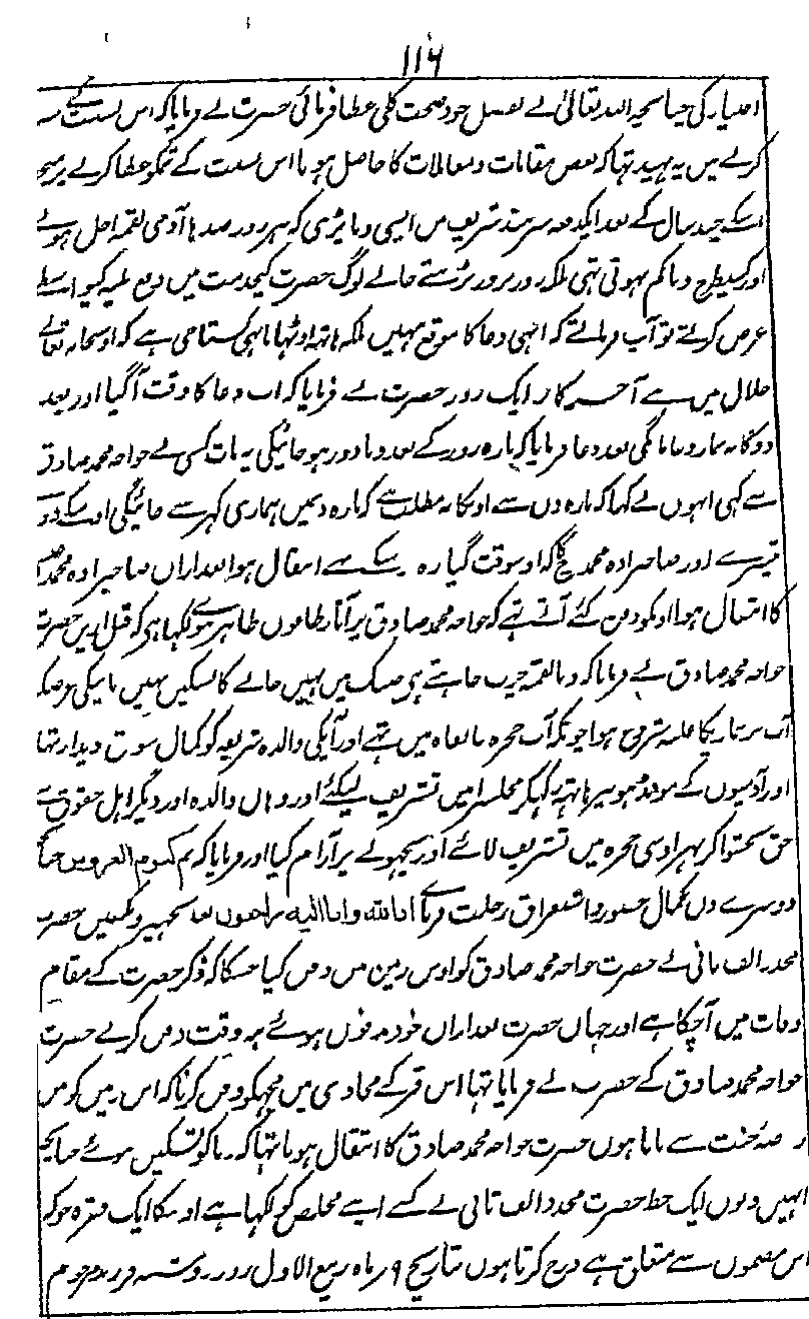 ۱۱۶
اختیار کی چنانچہ اللہ تعالیٰ نے بفضل خود صحت کلی عطا فرمائی حضرت نے فرمایا کہ اس نسبت کے
کرنے میں یہ بہید تہا کہ بعض مقامات و معاملات کا حاصل ہونا اس نسبت کے تمکو عطا کرنے پر
اسکے چند سال کے بعد ایکدفعہ سرہند شریف میں ایسی وبا پڑی کہ ہر روز صدہا آدمی لقمہ اجل ہوئے
اور کسیطرح وبا کم نہوتی تہی بلکہ روز بروز بڑہتے جاتے لوگ حضرت کیخدمت میں دفع کیواسطے
عرض کرتے تو آپ فرماتے کہ ابہی دعا کا موقع نہیں بلکہ ہاتہ اوٹہانا بہی گستاخی ہے کہ اوسبحانہ تعالےٰ
جلال میں ہے آخر کار ایک روز حضرت نے فرمایا کہ اب دعا کا وقت آگیا اور بعد
دوگانہ نماز دعا مانگی بعد دعا فرمایا کہ بارہ روز کے بعد وبا دور ہو جائیگی یہ بات کسی نے خواجہ محمد صادق
سے کہی انہوں نے کہا کہ بارہ دن سے اونکا یہ مطلب ہے کہ بارہ دنمیں ہماری گہر سے جائیگی اسکے دو
تیسرے اور صاحبزادہ محمد فرخ کا کہ اوسوقت گیارہ کے تھے انتقال ہوا بعد ازاں صاحبزادہ محمد عیسیٰ
کا انتقال ہوا اونکو دفن کئے آتے تہے کہ خواجہ محمد صادق پر آثار طاعون ظاہر ہوئے لکہا ہی کہ قبل ازیں حضرت
خواجہ محمد صادق نے فرمایا کہ وبا لقمہ چرب چاہتے ہی جبتک میں نہیں جانے کا تسکین نہیں پائیگی غرضکہ
آپ پر تپ کا غلبہ شروع ہوا چونکہ آپ حجرہ خانقاہ میں تہے اور آپکی والدہ شریفہ کو کمال شوق دیدار تہا
اور آدمیوں کے مونڈہو پر ہاتہہ رکہکر محلسرا میں تشریف لیگئے اور وہاں والدہ اور دیگر اہل حقوق سے
حق بخشوا کر پہر اوسی حجرہ میں تشریف لائے اور بچہونے پر آرام کیا اور فرمایا کہ نم کنوم العروس
دوسرے دن بکمال حضور و استغراق رحلت فرمائے انا للہ وانا الیہ راجعون بعد تجہیز و تکفین حضرت
مجدد الف ثانی نے حضرت خواجہ محمد صادق کو اوس زمین میں دفن کیا جسکا کہ ذکر حضرت کے مقام
وفات میں آچکا ہے اور جہاں حضرت بعد ازاں خود مدفون ہوئے بر وقت دفن کرنے حضرت
خواجہ محمد صادق کے حضرت نے فرمایا تہا اس قبر کے محاذی میں مجہکو دفن کرنا کہ اس میں کو میں
روضہ جنت سے پاتا ہوں حضرت خواجہ محمد صادق کا انتقال ہونا تہا کہ وبا کو تسکین ہوئے
انہیں دنوں ایک خط حضرت مجدد الف ثانی نے کسے اپنے مخلص کو لکہا ہے اوسکا ایک فقرہ جو کہ
اس مضموں سے متعلق ہے درج کرتا ہوں بتاریخ ۹ ماہ ربیع الاول روز دوشنبہ فرزند مرحوم